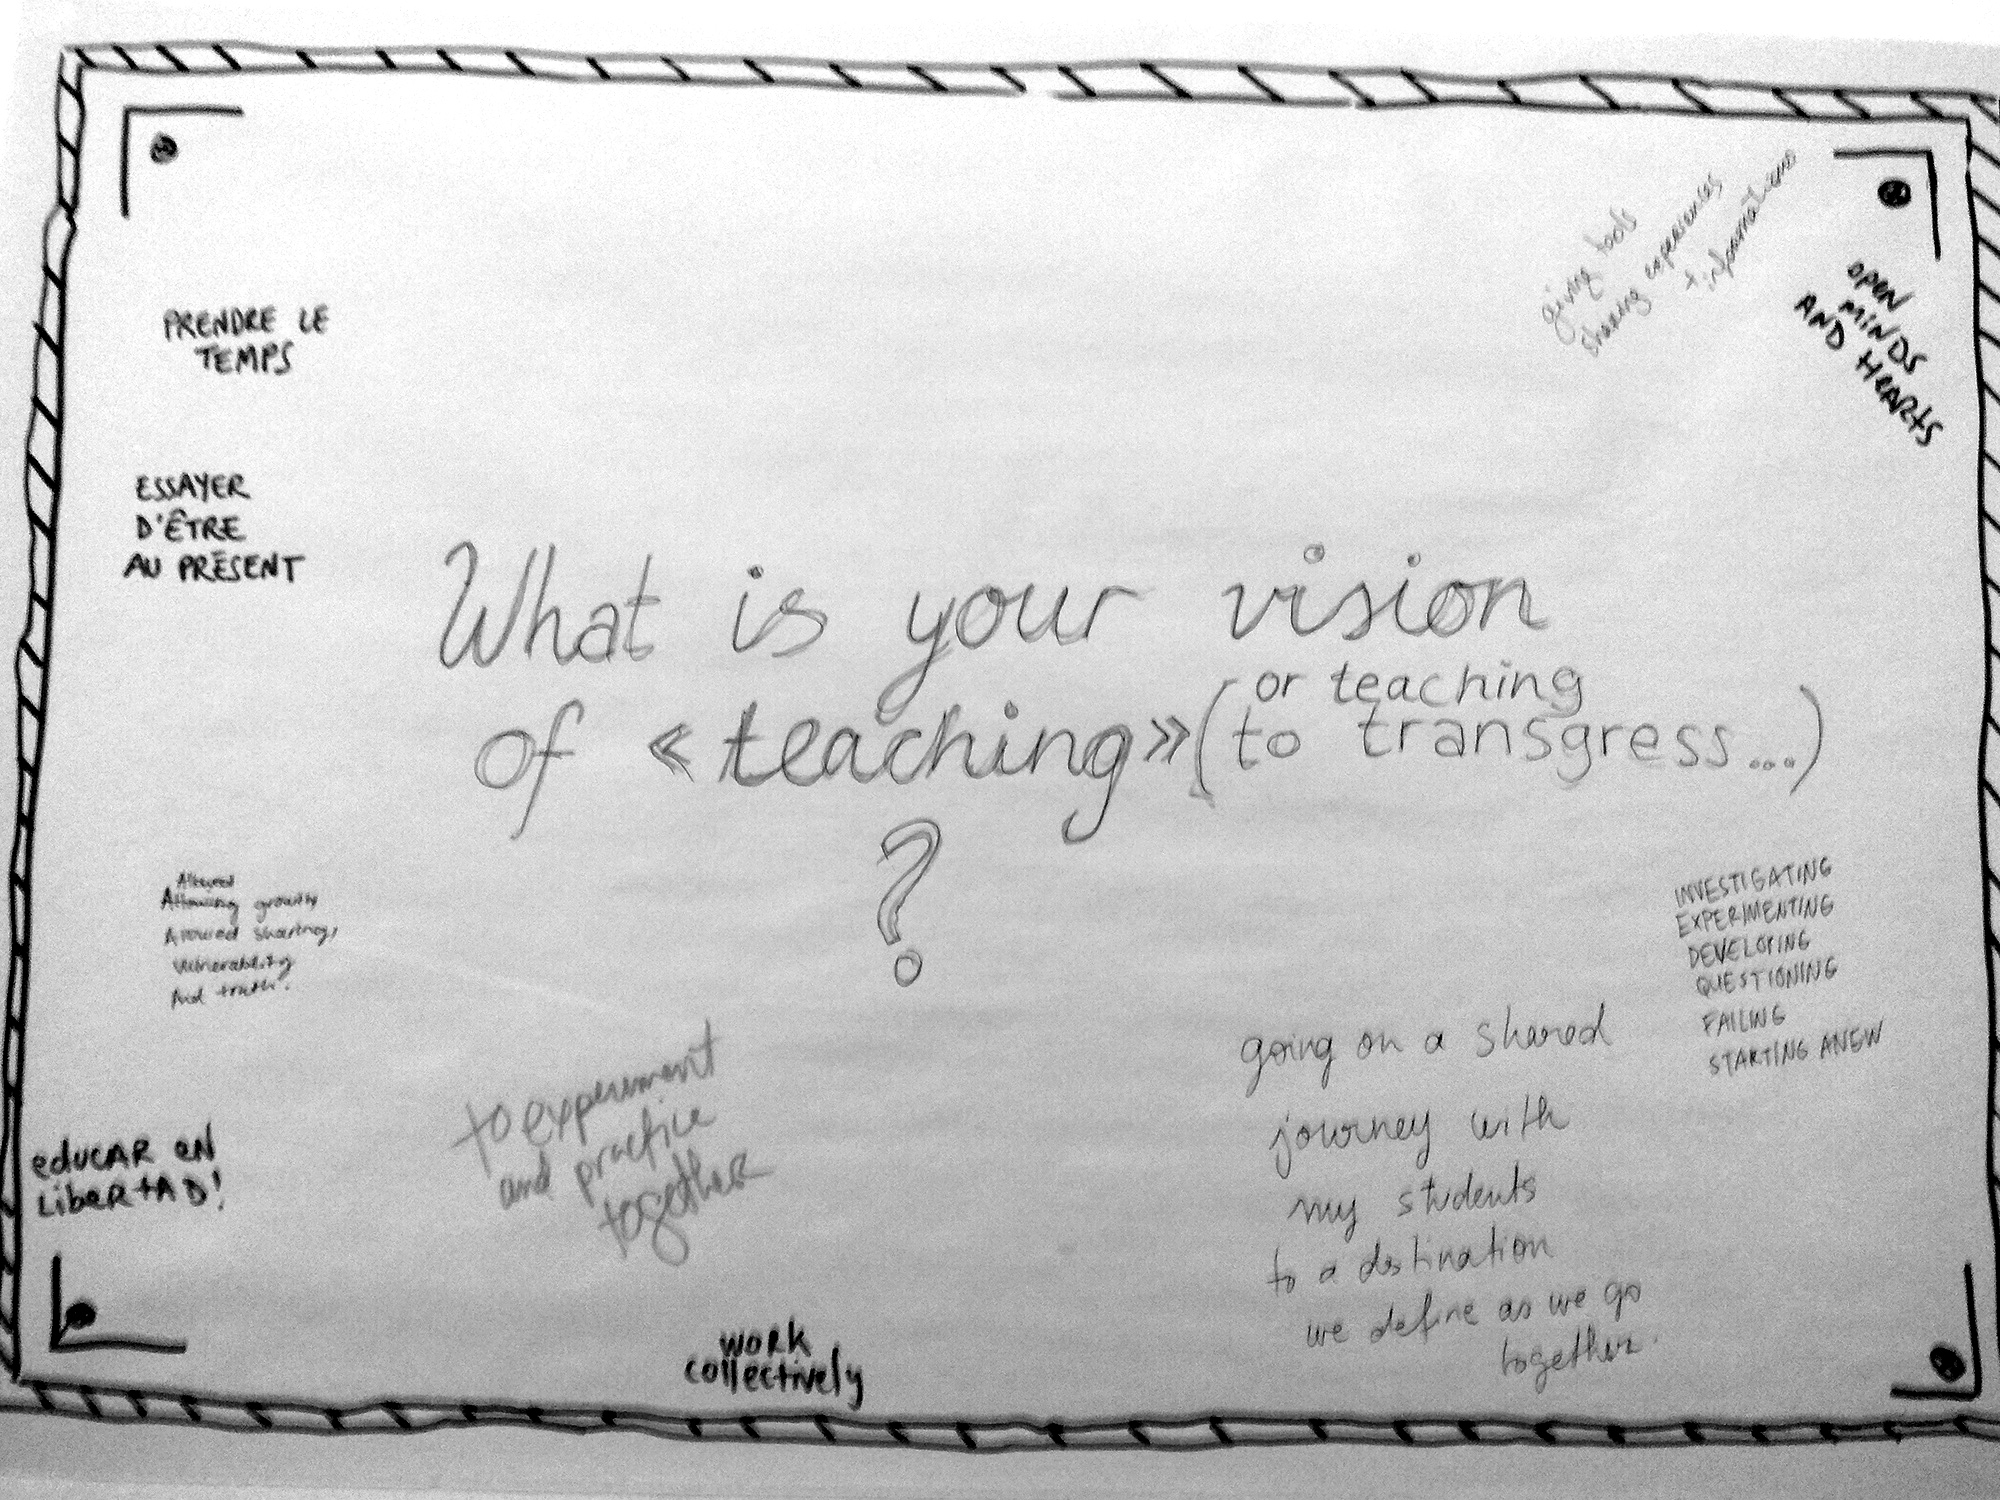 giving tools
sharing experiences
+ informations
OPEN
MINDS
AND HEARTS
PRENDRE LE
TEMPS
ESSAYER
D'ÊTRE
AU PRÉSENT
What is your vision
of « teaching » (or teaching
to transgress...)
?
Allowing growth
Allowed sharing,
vulnerability
And truth.
INVESTIGATING
EXPERIMENTING
DEVELOPING
QUESTIONING
FAILING
STARTING ANEW
going on a shared
journey with
my students
to a destination
we define as we go
together.
to experiment
and practice
together
educAR eN
LibeRtAD!
work
collectively